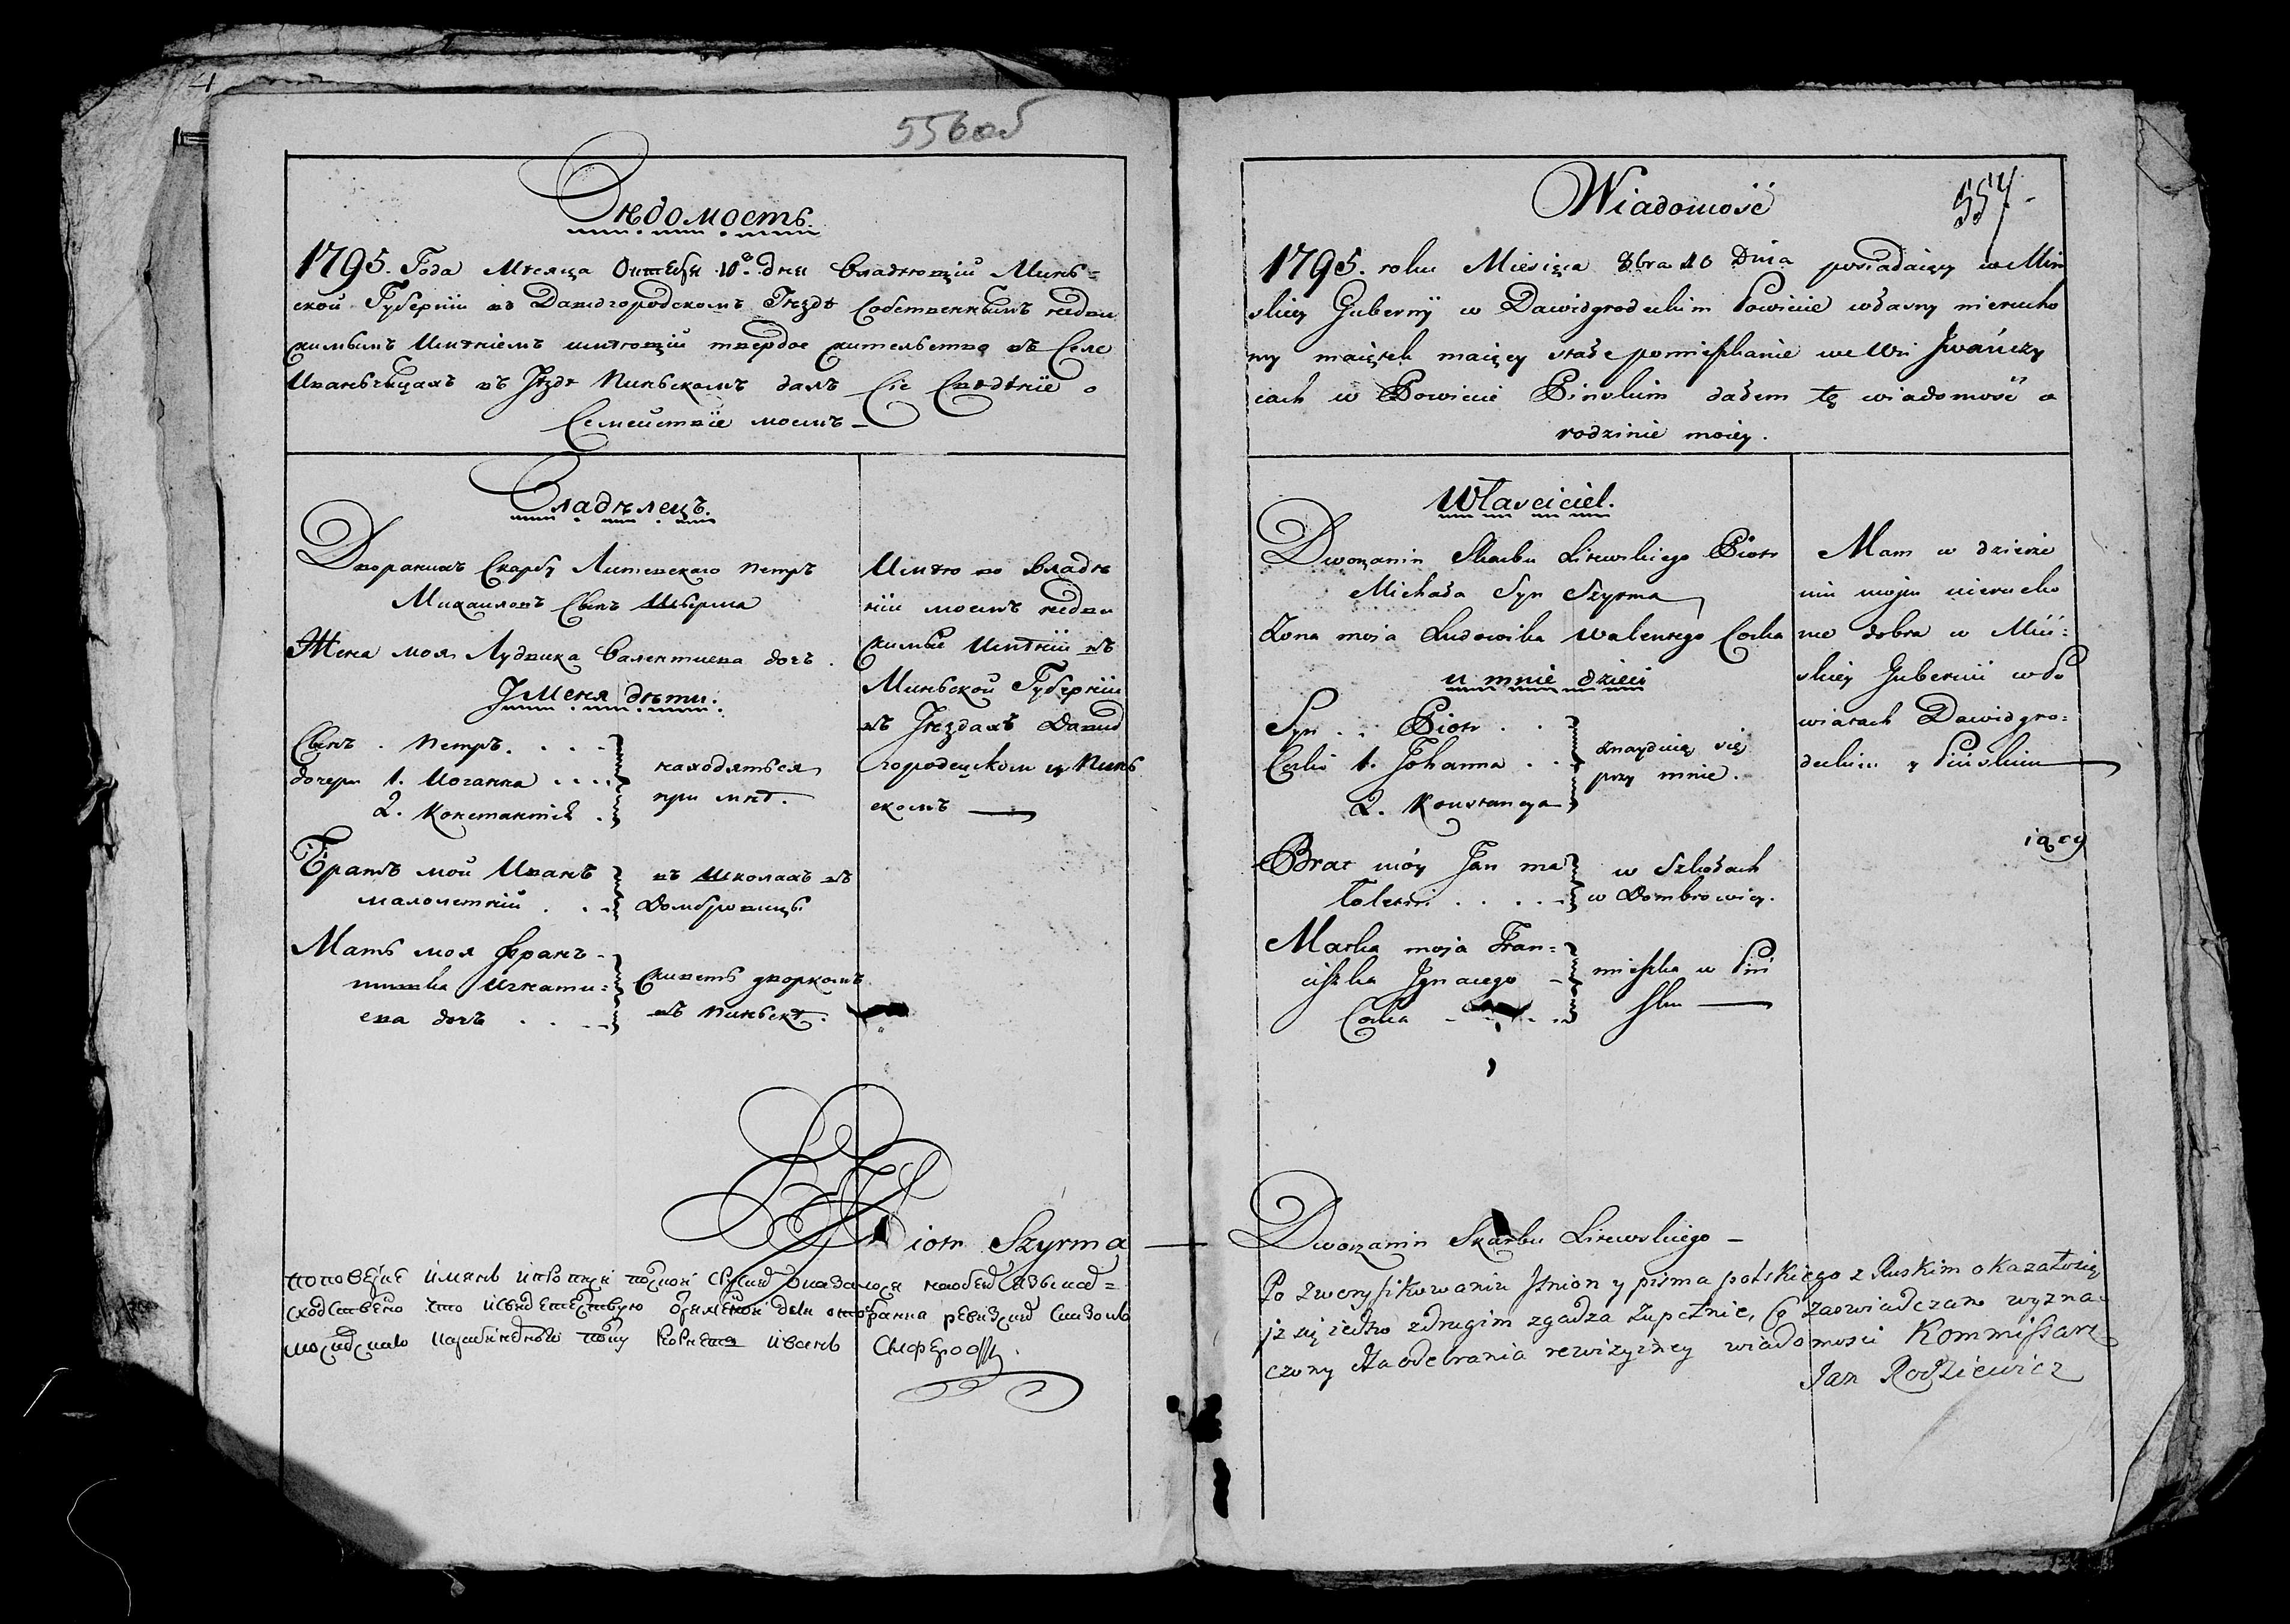 556об
Вѣдомость.
1795. Года Мѣсяца Октября 10º. дня Владѣющій Минь=
ской Губерніи въ Давидгородскомъ Уѣздѣ Собственнымъ недви
жимымъ Имѣніемъ имѣющій твердое жительство въ Селе
Иваньчицахъ въ Уѣздѣ Пиньскомъ далъ Сіе Сведѣніе о
Семействіе моемъ
Владѣлецъ.
Дворянинъ Скарбу Литевскаго Петръ
Михаиловъ Сынъ Шырма
Жена моя Лудвика Валентиева дочъ.
У Меня дѣти:
Сынъ . Петръ. . . .
дочери 1. Иоганна . . . .
2. Константія .
находяться
при мнѣ.
Братъ мой Иванъ
малолетній . . .
въ Школахъ въ
Домбровицы
Мать моя Франъ-
цишка Игнати=
ева дочъ . . .
Живетъ дворкомъ
въ Пиньскѣ.
Имѣю во Владѣ
ніи моемъ недви
жимые Имѣніи въ
Миньской Губерніи
въ Уѣздахъ Давид
городецком и Пинь
скомъ
Piotr Szyrma
Корнетъ Иванъ
557.
Wiadomość
1795. roku Miesięca 8bra 10 Dnia posiadaięcy w Miń
skiey Gubernÿ w Dawidgrodeckim Powiecie własny nierucho
my maiętek maięcy stałe pomieszkanie we Wsi Jwańczy
cach w Powiecie Pinskim dałem tę wiadomość o
rodzinie moiey.
Własciciel.
Dworzanin Skarbu Litewskiego Piotr
Michała Syn Szyrma
Zona moia Ludowika Walentego Corka
u mnie dzieci
Syn . . Piotr . . .
Corki 1. Johanna . .
2. Konstancya
znayduię się
przy mnie.
Brat móy Jan ma
łoletni . . . . .
w Szkołach
w Dombrowicy.
Matka moja Fran=
ciszka Jgnacego -
Corka - . . .
mieszka w Piń
sku
Mam w dzierże
niu mojm nierucho
me dobra w Miń=
skiey Gubernii w Po
wiatach Dawidgro=
deckim y Pińskim
iący
Dworzanin Skarbu Litewskiego -
Po zweryfikowaniu Jmion y pisma polskiego z Ruskim okazało się
jz się jedno z drugim zgadza zupełnie, Co zaswiadczam wyzna=
czony Na odebrania rewizyiney wiadomosci Kommissarz
Jan Rodziewicz